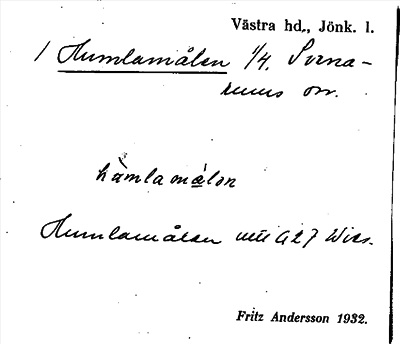 Västra hd., Jönk. l.
1 Humlamålen 1/4. Svena-
rums sn.
hàmlamálon
Humlamålen A27 Wiss.
Fritz Andersson 1932.